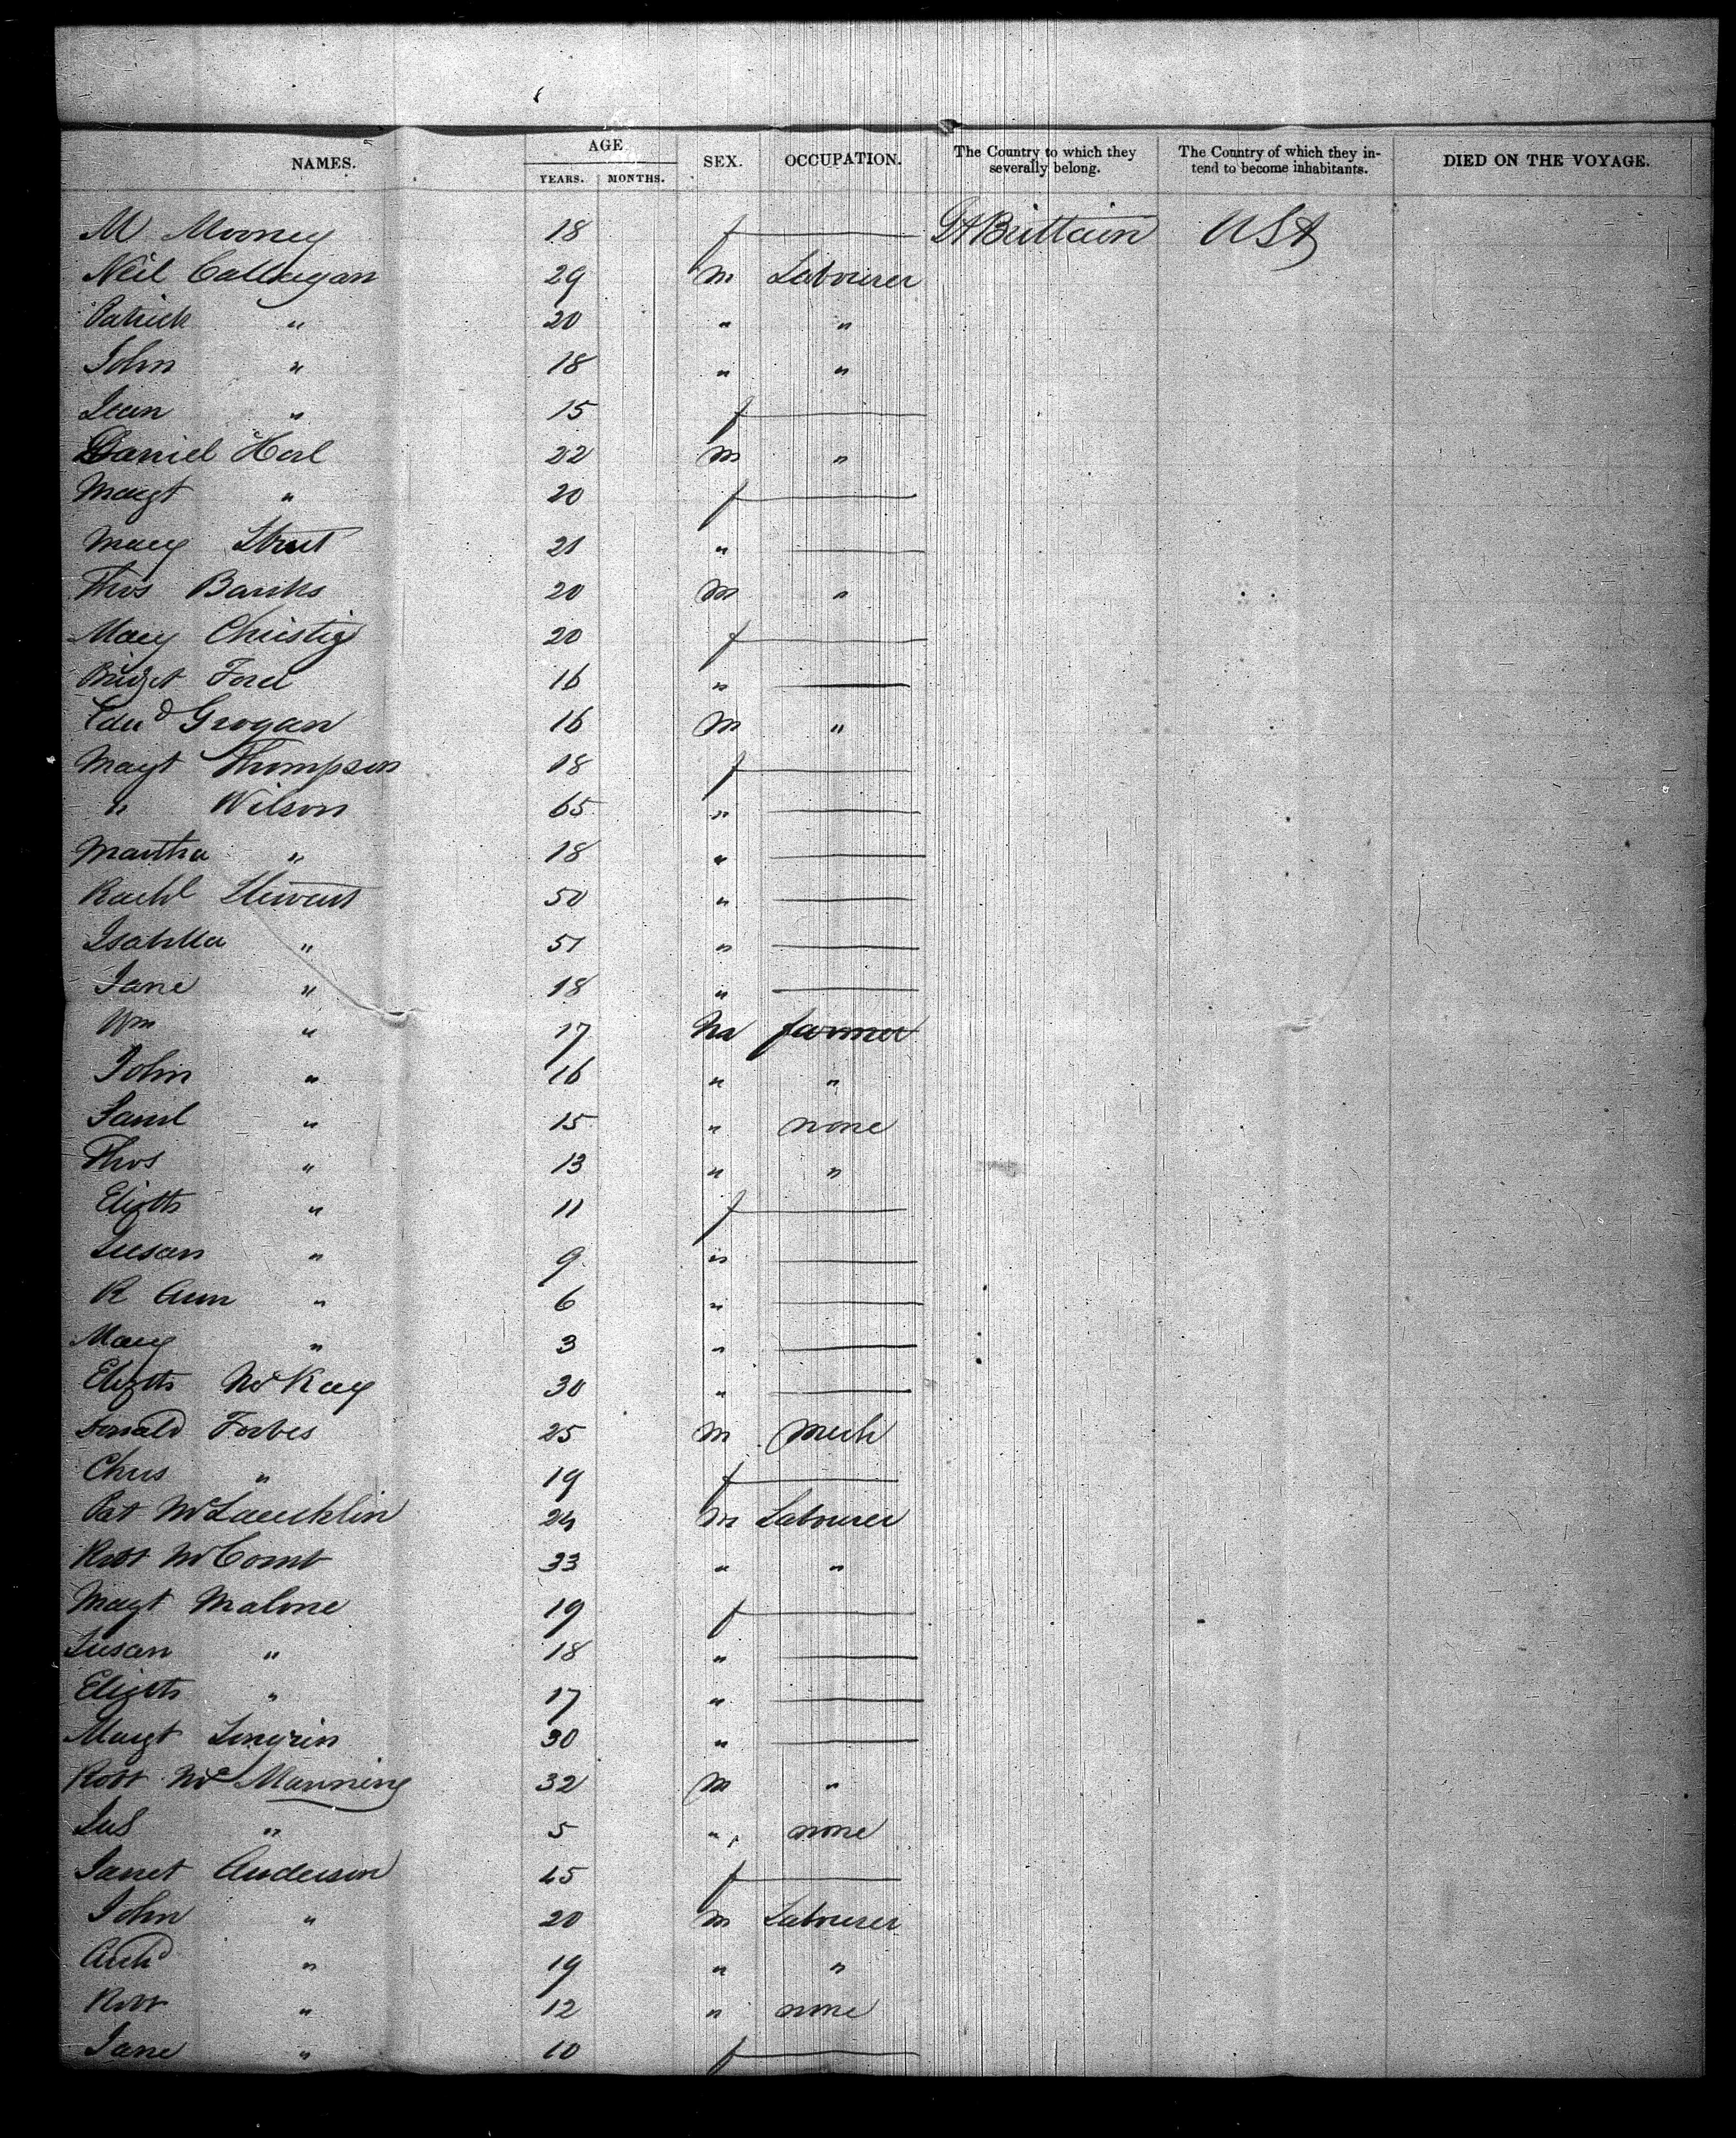 NAMES. AGE SEX. OCCUPATION. The Country to which they severally belong. The Country of which they intend to become inhabitants. DIED ON THE VOYAGE.
YEARS. MONTHS.
M Mooney 18 f — Gt Brittain USA
Neil Callaghan 29 m Labourer
Patrick " 20 " "
John " 18 " "
Jean " 15 f —
Daniel 22 m "
Margt " 20 f —
Mary Strut 21 " —
Thos Banks 20 m "
Mary Christie 20 f —
Bridget Ford 16 " —
Edwd Grogan 16 m "
Margt Thompson 18 f —
" Wilson 65 " —
Martha " 18 " —
Rachl Stewart 50 " —
Isabella " 51 " —
Jane " 18 " —
Wm " 17 m farmer
John " 16 " "
Saml " 15 " none
Thos " 13 " "
Elizth " 11 f —
Susan " 9 " —
R Ann " 6 " —
Mary " 3 " —
Elizth McKay 30 " —
Donald Forbes 25 m mech
Chris " 19 f —
Pat McLauchlin 24 m Labourer
Robt McComb 33 " "
Margt Malone 19 f —
Susan " 18 " —
Elizth " 17 " —
Margt 30 " —
Robt McManning 32 m "
Jas " 5 " none
Janet Anderson 45 f —
John " 20 m Labourer
Archd " 19 " "
Robt " 12 " none
Jane " 10 f —